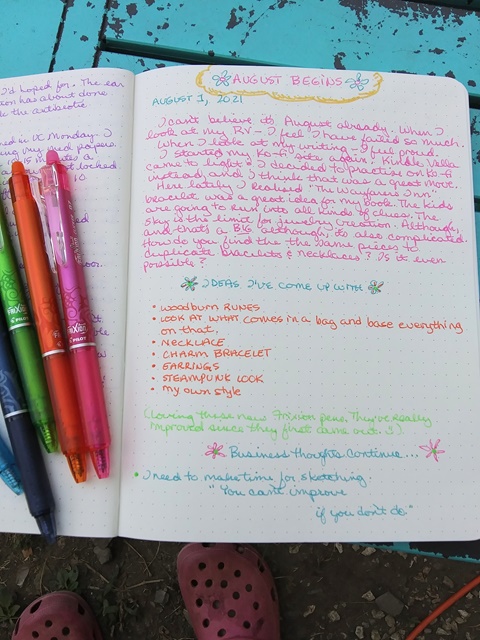 I'd hoped for. The ear
tion has about done
the antibiotic
Monday- I
my med papers.
locked
10
AUGUST BEGINS
AUGUST 1, 2021
I can't believe it's August already. When I
look at my RV - I feel I have failed so much.
When I look at my writing - I feel proud.
I started my Ko-fi site again. Kindle Vella
came to light & I decided to practise on Ko-fi
instead, and I think that was a great move.
Here lately I realised "The Wayfare Inn"
bracelet was a great idea for my book. The kids
are going to run into all kinds of clues. The
sky is the limit for jewelry creation. Although,
and that's a BIG although, its also complicated.
How do you find the the same pieces to
duplicate bracelets & necklaces? Is it even
possible?
IDEAS I'VE COME UP WITH
• WOODBURN RUNES
• LOOK AT WHAT COMES IN A BAG and BASE everything
on that.
• NECKLACE
• CHARM BRACELET
• EARRINGS
• STEAMPUNK LOOK
• my own style
(Loving these new Frixion pens. They've really
improved since they first came out. :)
Business thoughts Continue...
• I need to make time for sketching.
"You can't improve
if you don't do."
FriXion
PILOT
FriXion
PILOT